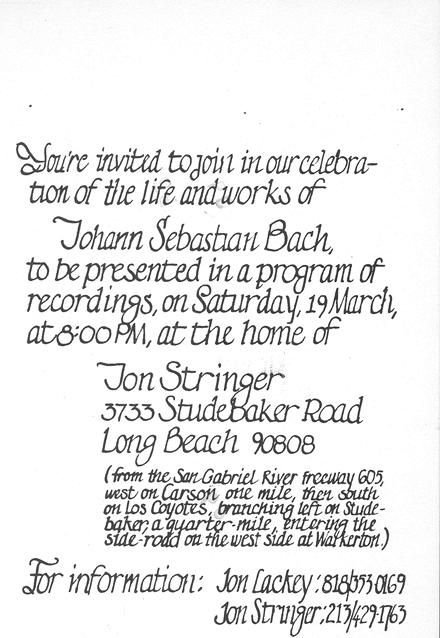 You're invited to join in our celebra-
tion of the life and works of
Johann Sebastian Bach,
to be presented in a program of
recordings, on Saturday, 19 March,
at 8:00 PM, at the home of
Jon Stringer
3733 Studebaker Road
Long Beach 90808
(from the San Gabriel River freeway 605,
west on Carson one mile, then south
on Los Coyotes, branching left on Stude-
baker; a quarter-mile, entering the
side-road on the west side at Walkerton.)
For information: Jon Lackey: 818/353-0169
Jon Stringer: 213/429-1763